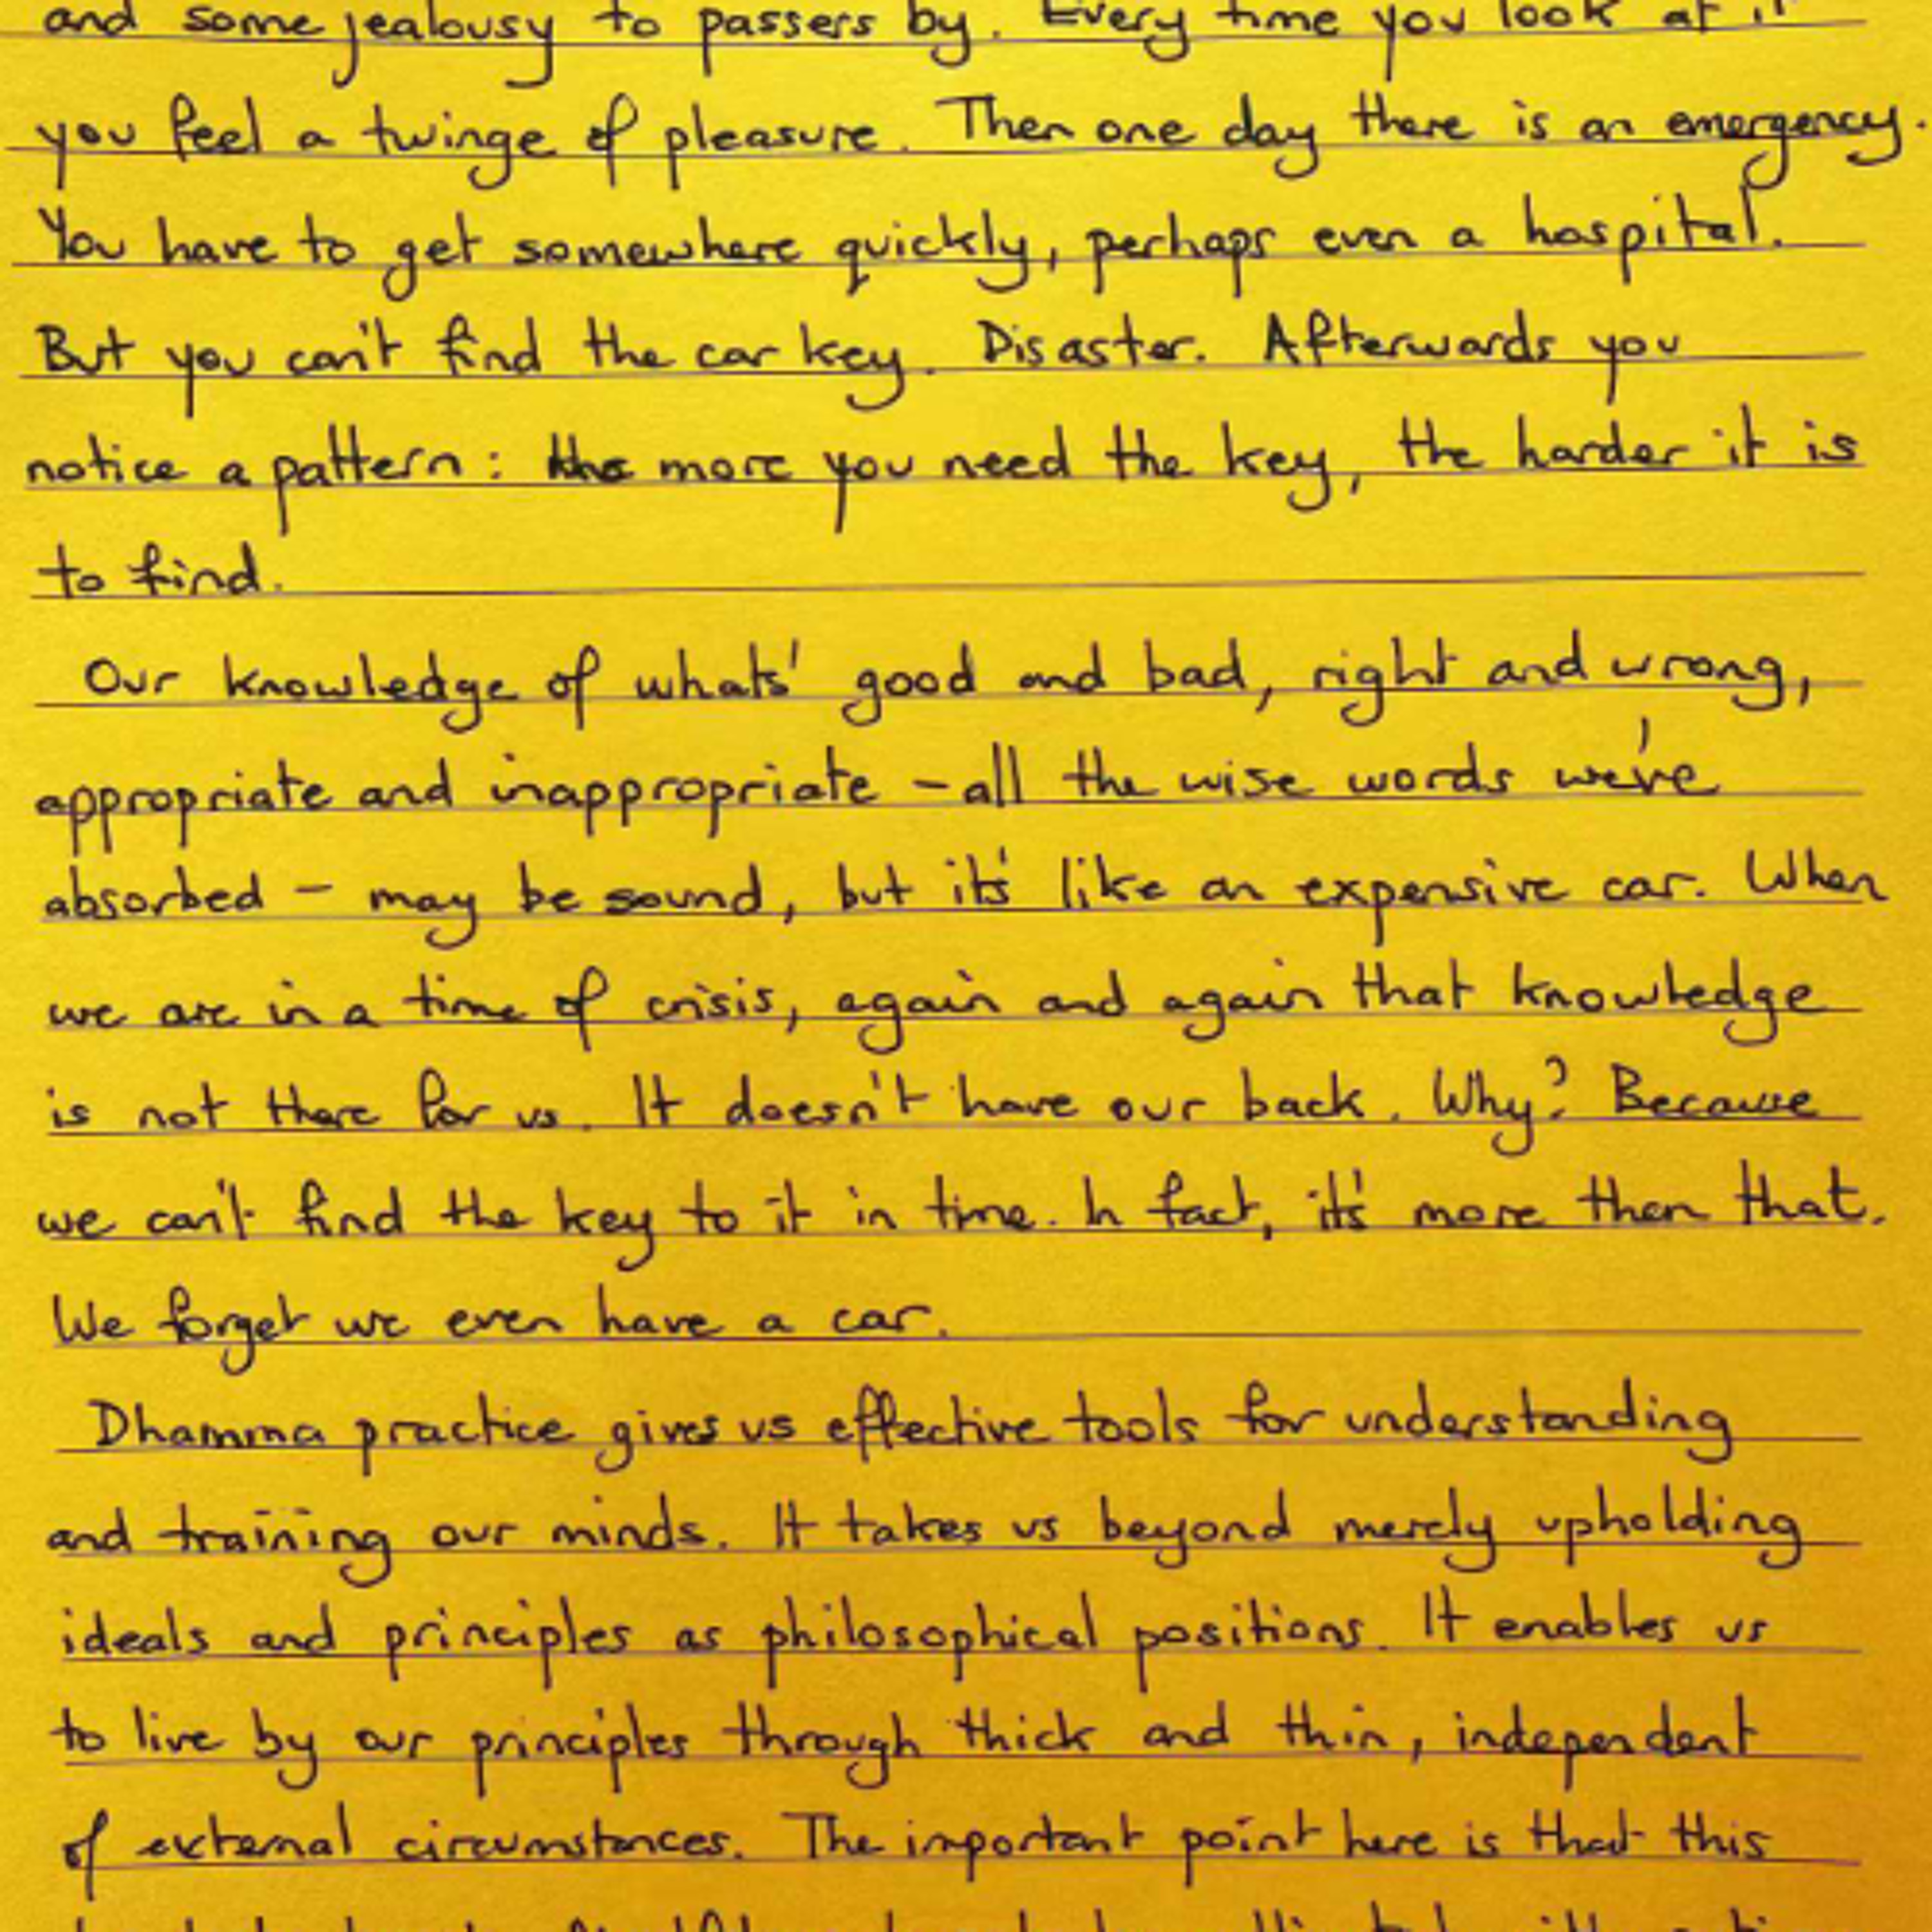 and some jealousy to passers by. Every time you look at it
you feel a twinge of pleasure. Then one day there is an emergency.
You have to get somewhere quickly, perhaps even a hospital.
But you can't find the car key. Disaster. Afterwards you
notice a pattern: the more you need the key, the harder it is
to find.
Our knowledge of whats' good and bad, right and wrong,
appropriate and inappropriate – all the wise words we've
absorbed – may be sound, but it's like an expensive car. When
we are in a time of crisis, again and again that knowledge
is not there for us. It doesn't have our back. Why? Because
we can't find the key to it in time. In fact, it's more then that.
We forget we even have a car.
Dhamma practice gives us effective tools for understanding
and training our minds. It takes us beyond merely upholding
ideals and principles as philosophical positions. It enables us
to live by our principles through thick and thin, independent
of external circumstances. The important point here is that this